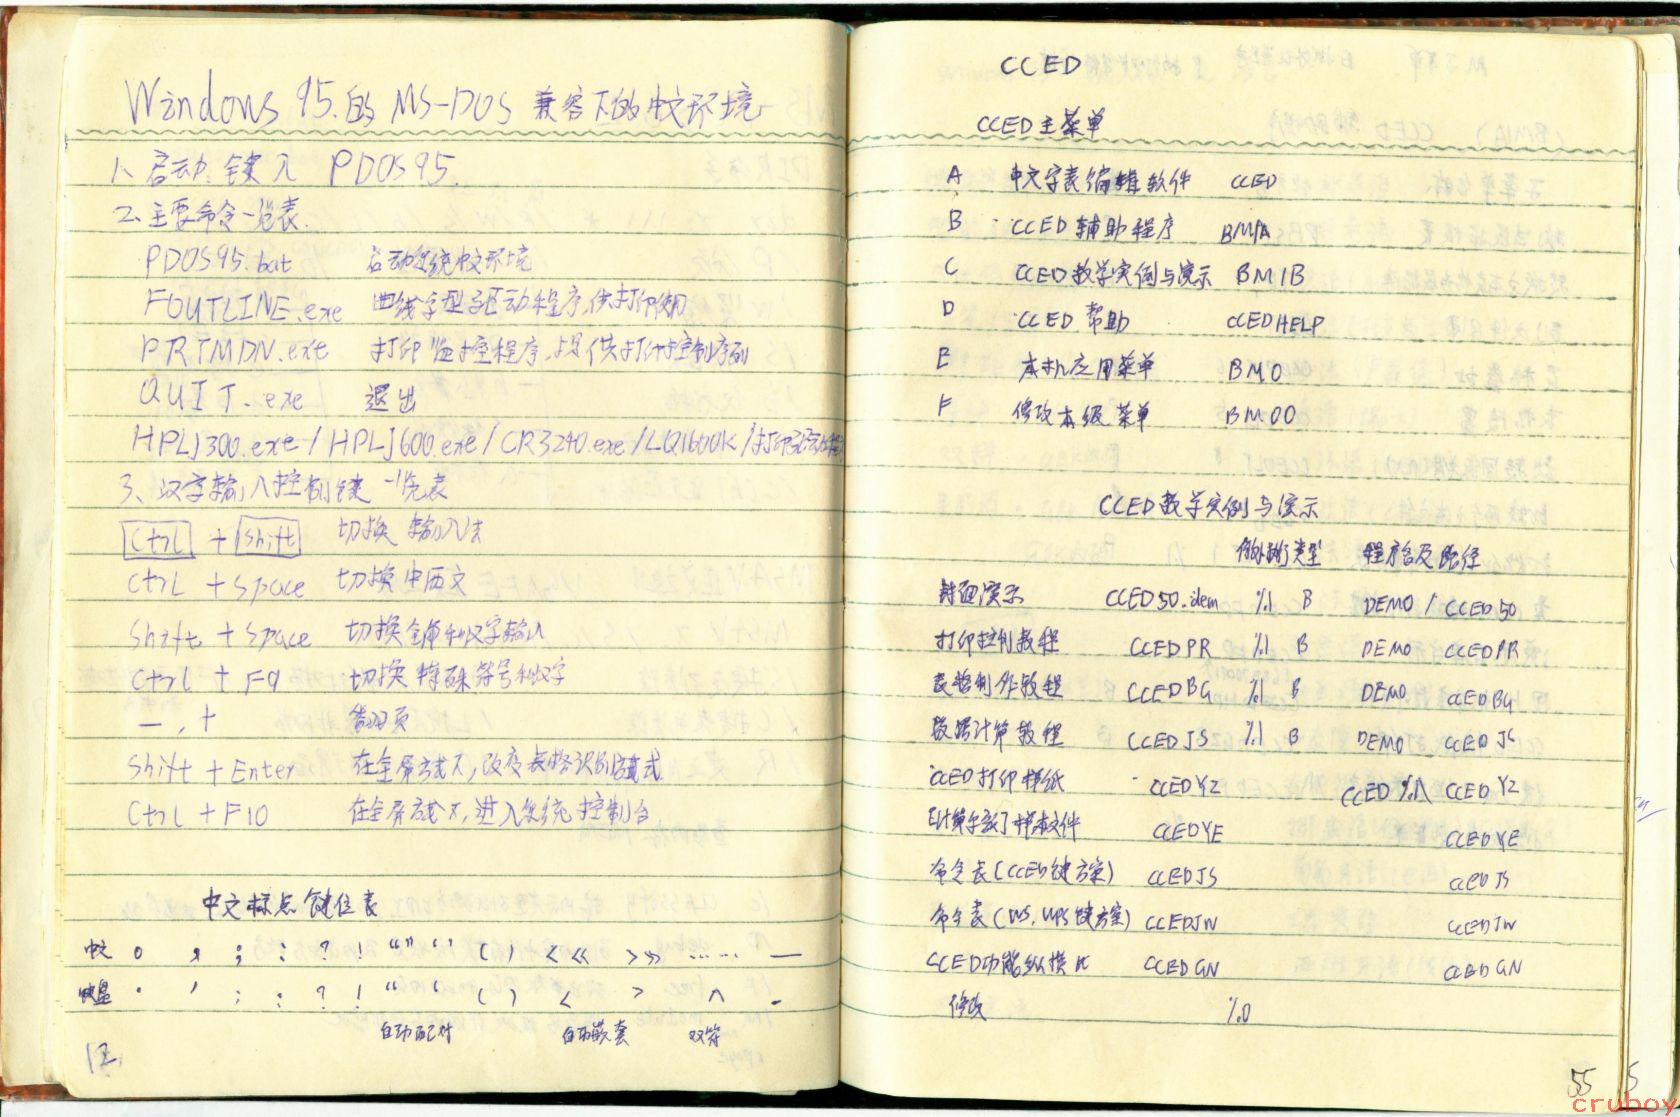 Windows 95.的 MS-DOS 兼容下的中文环境
1、启动:键入 PDOS95.
2、主要命令一览表.
PDOS95.bat 启动系统中文环境
FOUTLINE.exe 曲线字型驱动程序,供打印使用
PRTMDN.exe 打印监控程序,提供打印控制序列
QUIT.exe 退出
HPLJ300.exe/HPLJ600.exe/CR3240.exe/LQ1600K/打印驱动程序
3、汉字输入控制键一览表
Ctrl + Shift 切换输入法
Ctrl + Space 切换中西文
Shift + Space 切换全角和汉字输入
Ctrl + F9 切换特殊符号和汉字
— , + 翻页
Shift + Enter 在全屏方式下,改变表格识别模式
Ctrl + F10 在全屏方式下,进入系统控制台
中文标点键位表
中文 。 , ; : ? ! “” ‘’ ( ) < 《 > 》 …… —
键盘 . , ; : ? ! “ ‘ ( ) < > ^ -
自动配对 自动嵌套 双符
12
CCED
CCED主菜单
A 中文字表编辑软件 CCED
B CCED辅助程序 BM1A
C CCED教学实例与演示 BM1B
D CCED 帮助 CCEDHELP
E 本机应用菜单 BM0
F 修改本级菜单 BM00
CCED教学实例与演示
类型 程序名及路径
封面演示 CCED50.dem %1 B DEMO / CCED50
打印控制教程 CCEDPR %1 B DEMO CCEDPR
表格制作教程 CCEDBG %1 B DEMO CCEDBG
数据计算教程 CCEDJS %1 B DEMO CCEDJS
CCED打印样纸 CCEDYZ CCED %1 CCEDYZ
样本文件 CCEDYE CCEDYE
命令表(CCED键方案) CCEDJS CCEDJS
命令表(WS,WPS键方案) CCEDJW CCEDJW
CCED功能纵横比 CCEDGN CCEDGN
修改 %0
55
5
crubox